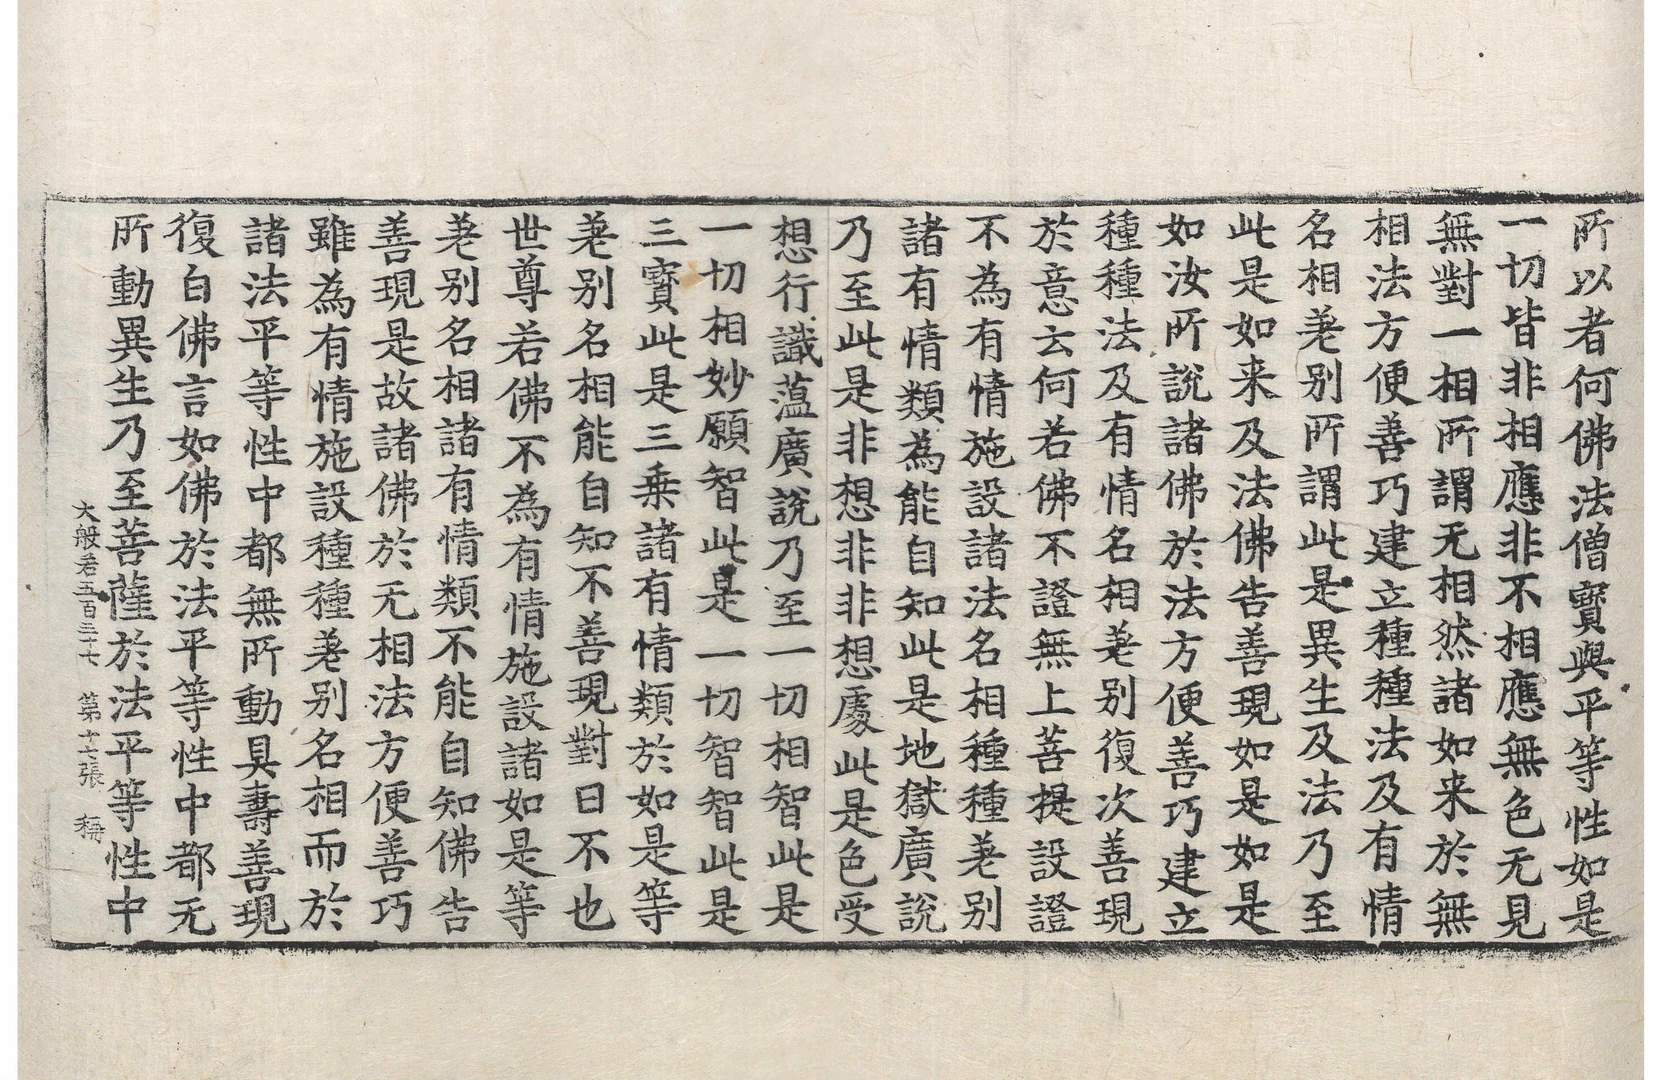 所以者何佛法僧寳與平等性如是
一切皆非相應非不相應無色无見
無對一相所謂无相然諸如来於無
相法方便善巧建立種種法及有情
名相差别所謂此是異生及法乃至
此是如来及法佛告善現如是如是
如汝所說諸佛於法方便善巧建立
種種法及有情名相差别復次善現
於意云何若佛不證無上菩提設證
不為有情施設諸法名相種種差别
諸有情類為能自知此是地獄廣說
乃至此是非想非非想處此是色受
想行識蕰廣說乃至一切相智此是
一切相妙願智此是一切智智此是
三寳此是三乗諸有情類於如是等
差别名相能自知不善現對曰不也
世尊若佛不為有情施設諸如是等
差别名相諸有情類不能自知佛告
善現是故諸佛於无相法方便善巧
雖為有情施設種種差别名相而於
諸法平等性中都無所動具壽善現
復白佛言如佛於法平等性中都无
所動異生乃至菩薩於法平等性中
大般若五百三十七 第十七張 稱